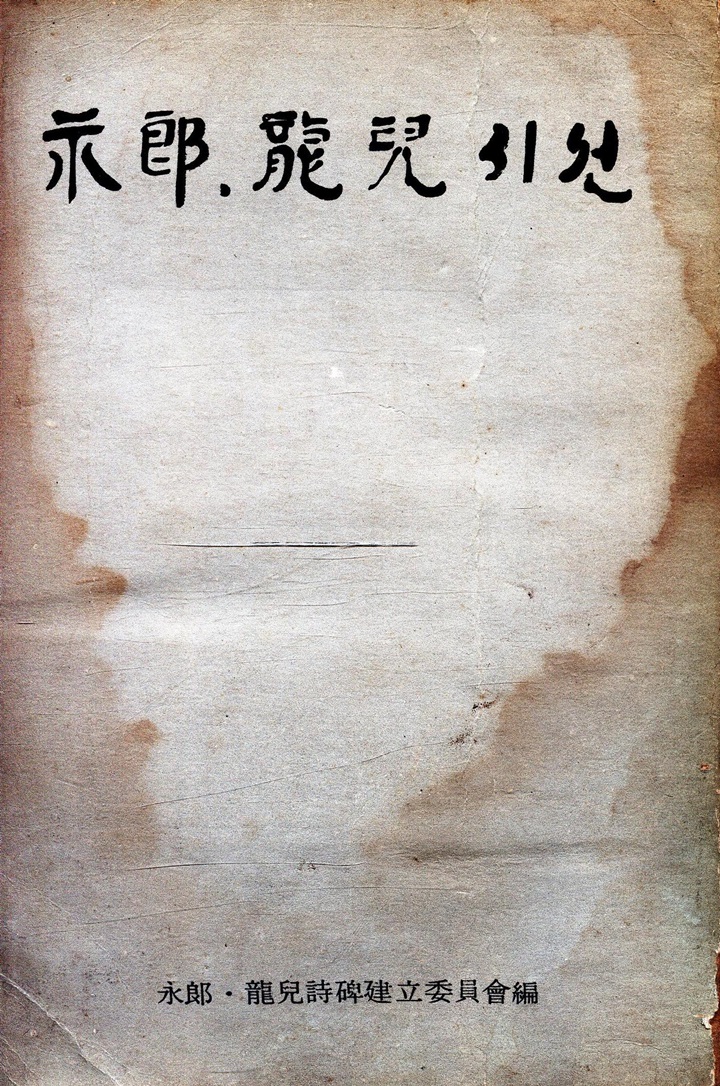 永郎.龍兒 시선
永郎·龍兒詩碑建立委員會編